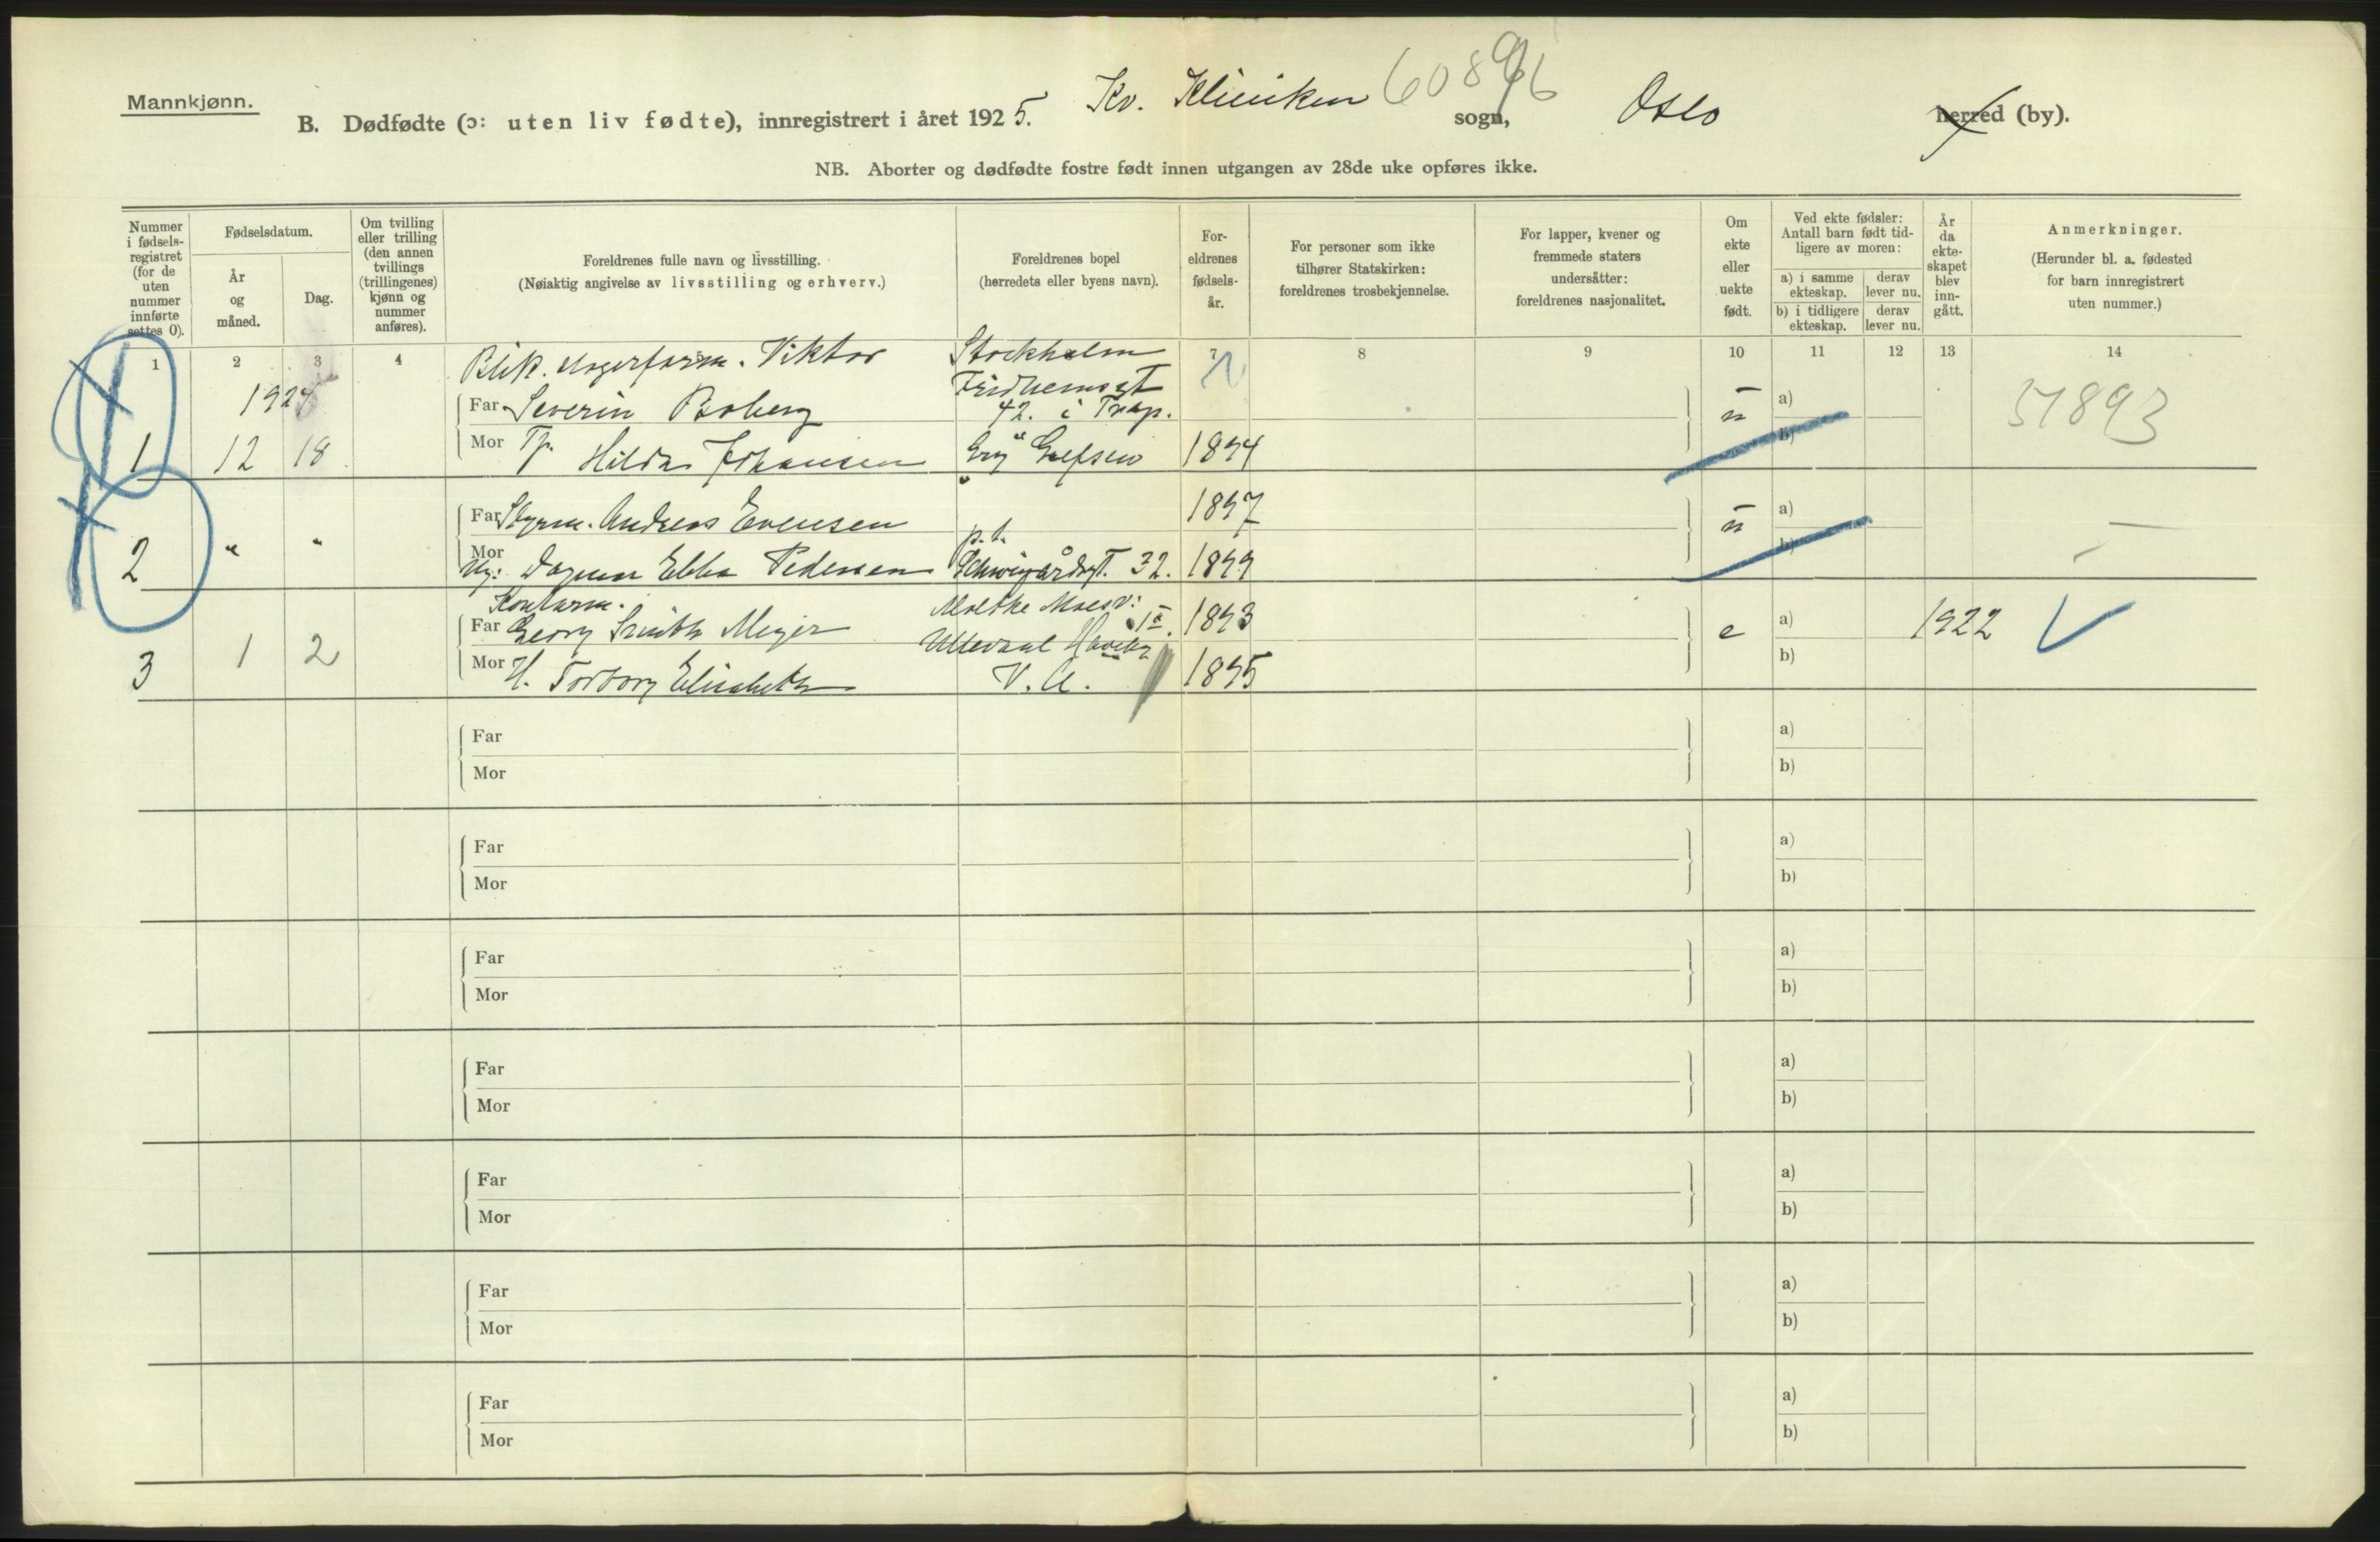 Mannkjønn.
B. Dødfødte (ɔ: uten liv fødte), innregistrert i året 1925. Kv. Kliniken sogn, Oslo herred (by).
NB. Aborter og dødfødte fostre født innen utgangen av 28de uke opføres ikke.
Nummer i fødselsregistret (for de uten nummer innførte settes 0).
Fødselsdatum.
År og måned.
Dag.
Om tvilling eller trilling (den annen tvillings (trillingenes) kjønn og nummer anføres).
Foreldrenes fulle navn og livsstilling.
(Nøiaktig angivelse av livsstilling og erhverv.)
Foreldrenes bopel
(herredets eller byens navn).
Foreldrenes fødselsår.
For personer som ikke tilhører Statskirken: foreldrenes trosbekjennelse.
For lapper, kvener og fremmede staters undersåtter: foreldrenes nasjonalitet.
Om ekte eller uekte født.
Ved ekte fødsler: Antall barn født tidligere av moren:
a) i samme ekteskap.
derav lever nu.
b) i tidligere ekteskap.
derav lever nu.
År da ekteskapet blev inngått.
Anmerkninger.
(Herunder bl. a. fødested for barn innregistrert uten nummer.)
1 2 3 4 7 8 9 10 11 12 13 14
Viktor Stockholm
1924 Far Severin Boberg 42. ü a) 51893
1 12 18 Mor Tj. Hilda Johansen Grefsen 1894 b)
Far Styrm. Andreas Evensen 1897 ü a)
p.t.
2 " " Mor Dagmar Ebba Pedersen Schweigårdsgt. 32. 1899 b)
Kontorm. Moltke Moesv:
Far Georg Smith Meyer 1893 e a) 1922
Ullevaal Haveby
3 1 2 Mor H. Torborg Elisabeth V. A. 1895 b)
Far a)
Mor b)
Far a)
Mor b)
Far a)
Mor b)
Far a)
Mor b)
Far a)
Mor b)
Far a)
Mor b)
Far a)
Mor b)